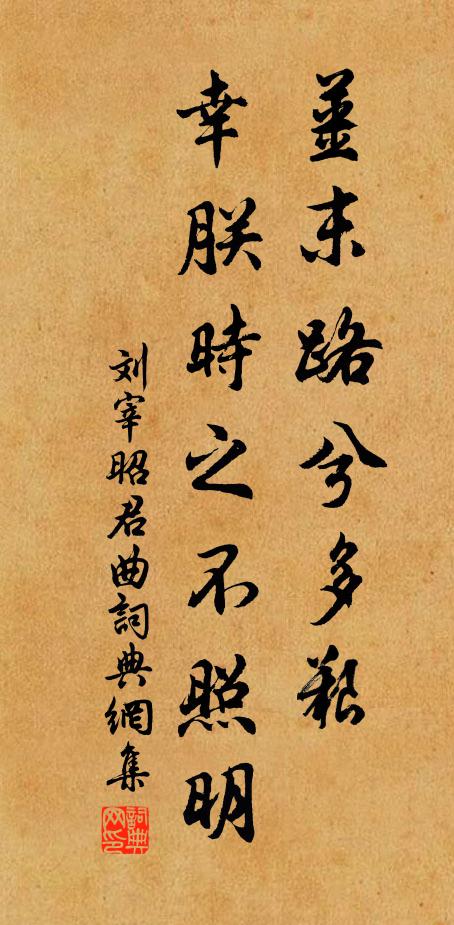 薑末路兮多艱
幸朕時之不照明
刘宰昭君曲詞典網集
詞典
网印